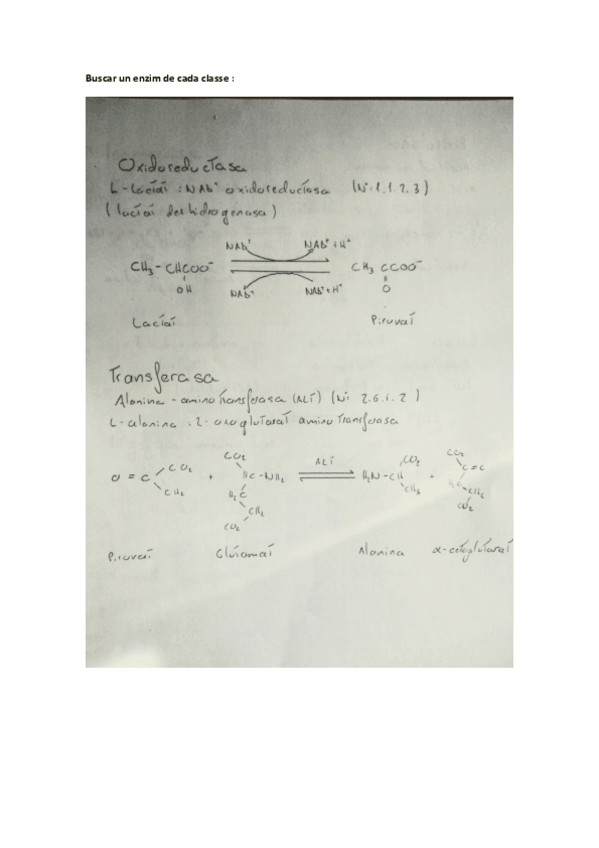 Buscar un enzim de cada classe :
Oxidoreductasa
L-lactat : NAD⁺ oxidoreductasa (Nº 1.1.2.3)
(lactat deshidrogenasa)
NAD⁺ NAD⁺ + H⁺
CH₃ - CHCOO⁻ CH₃ CCOO⁻
OH O
NAD⁺ NAD⁺ + H⁺
Lactat Piruvat
Transferasa
Alanina - aminotransferasa (ALT) (Nº 2.6.1.2)
L-alanina : 2-oxoglutarat aminotransferasa
CO₂ CO₂ ALT CO₂ CO₂
O = C + HC - NH₂ H₂N - CH + C = C
CH₂ H₂C CH₃ CH₂
CH₂
CO₂ CO₂
Piruvat Glutamat Alanina α-cetoglutarat